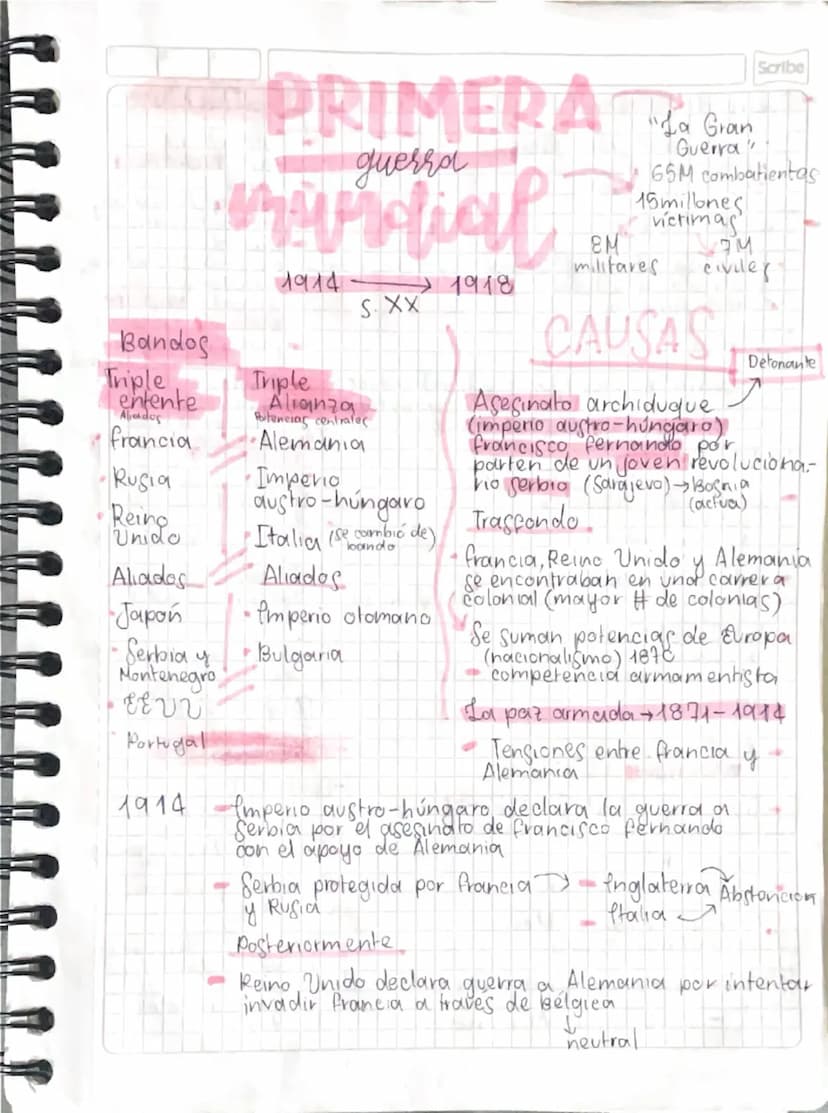 Scribe
PRIMERA
guerra
mundial
1914 → 1918
S. XX
"La Gran
Guerra"
65M combatientes
15 millones
víctimas
8M
militares
7M
civiles
Bandos
Triple
entente
Aliados
Francia
Rusia
Reino
Unido
Aliados
Japón
Serbia y
Montenegro
EEUU
Portugal
Triple
Alianza
Potencias centrales
Alemania
Imperio
austro-húngaro
Italia (se cambió de
bando)
Aliados
Imperio otomano
Bulgaria
CAUSAS
Detonante
Asesinato archiduque
(imperio austro-húngaro)
francisco fernando por
parten de un joven revoluciona-
rio serbio (Sarajevo) → Bosnia
(actua)
Trasfondo
Francia, Reino Unido y Alemania
se encontraban en una carrera
colonial (mayor # de colonias)
Se suman potencias de Europa
(nacionalismo) 1870
competencia armamentista
La paz armada → 1871-1914
Tensiones entre francia y
Alemania
1914
- Imperio austro-húngaro declara la guerra a
Serbia por el asesinato de francisco fernando
con el apoyo de Alemania
- Serbia protegida por francia → - Inglaterra → Abstencion
y Rusia - Italia →
Posteriormente
- Reino Unido declara guerra a Alemania por intentar
invadir francia a traves de Bélgica
↓
neutral